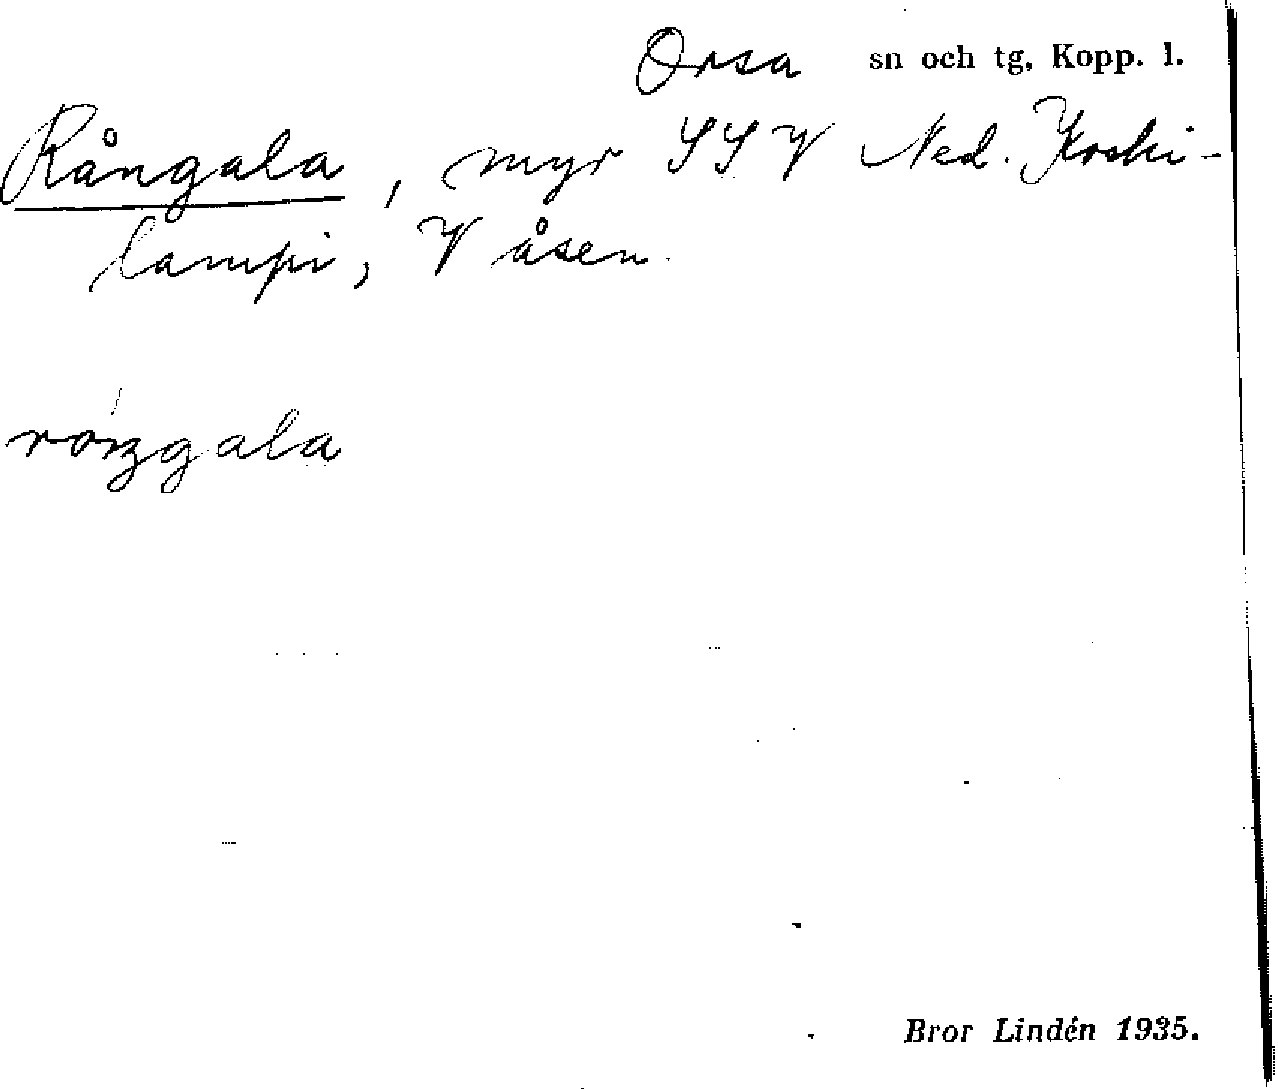 Orsa sn och tg, Kopp. l.
Rångala, myr SSV Ned. Koski-
lampi, V åsen.
róŋgala
Bror Lindén 1935.